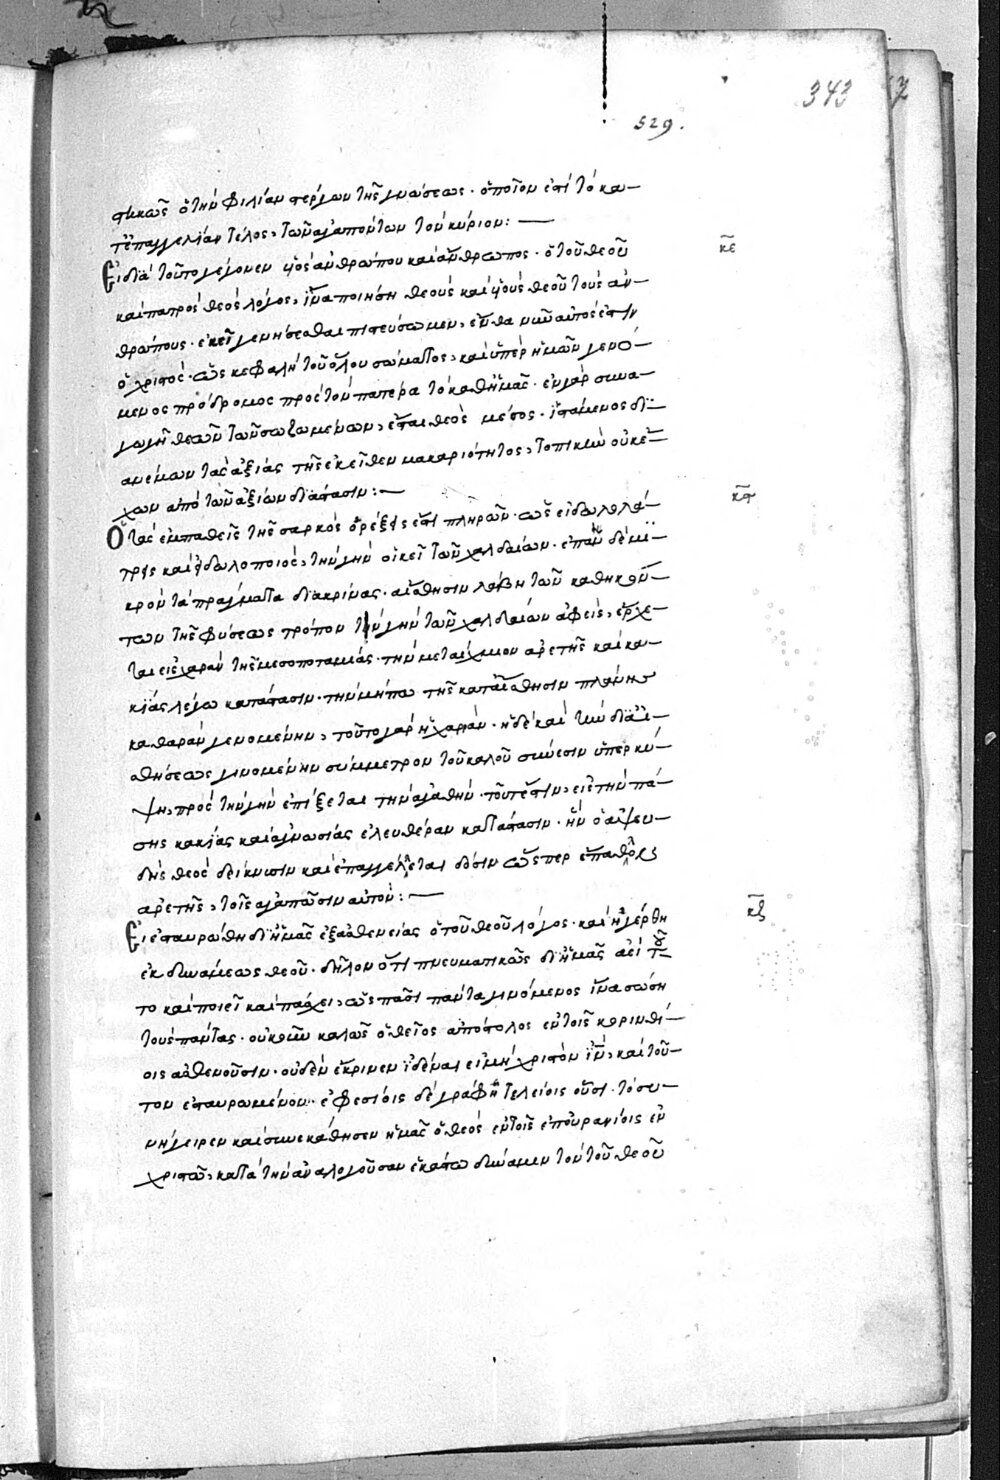 343
529.
στικῶς ὁ τὴν φιλίαν στέργων τῆς γνώσεως. ὁποῖον ἐστὶ τὸ κα-
τ' ἐπαγγελίαν τέλος, τῶν ἀγαπόντων τὸν κύριον:—
κε
Εἰ διὰ τοῦτο γέγονεν υἱὸς ἀνθρώπου καὶ ἄνθρωπος. ὁ τοῦ θεοῦ
καὶ πατρὸς θεὸς λόγος, ἵνα ποιήση θεοὺς καὶ υἱοὺς θεοῦ τοὺς ἀν-
θρώπους. ἐκεῖ γενήσεσθαι πιστεύσωμεν, ἔνθα νῦν αὐτός ἐστιν
ὁ χριστός. ὡς κεφαλὴ τοῦ ὅλου σώματος, καὶ ὑπὲρ ἡμῶν γενό-
μενος πρόδρομος πρὸς τὸν πατέρα τὸ καθ' ἡμᾶς. ἐν γὰρ συνα-
γωγῇ θεῶν τῶν σωζομένων, ἔσται θεὸς μέσος. ἱστάμενος δι-
ανέμων τὰς ἀξίας τῆς ἐκεῖθεν μακαριότητος, τοπικὴν οὐκ ἔ-
χων ἀπὸ τῶν ἀξίων διάστασιν:—
κϛ
Ὁ τὰς ἐμπαθεῖς τῆς σαρκὸς ὀρέξεις ἔτι πληρῶν. ὡς εἰδωλολά-
τρης καὶ εἰδωλοποιός, τὴν γῆν οἰκεῖ τῶν χαλδαίων. ἐπὰν δὲ μι-
κρὸν τὰ πράγματα διακρίνας. αἴσθησιν λάβη τῶν καθηκόν-
των τῆς φύσεως τρόπων τὴν γῆν τῶν χαλδαίων ἀφείς, ἔρχε-
ται εἰς χαρὰν τῆς μεσοποταμίας. τὴν μεταίχμιον ἀρετῆς καὶ κα-
κίας λέγω κατάστασιν. τὴν μήπω τῆς κατ' αἴσθησιν πλάνης
καθαρὰν γενομένην, τοῦτο γὰρ ἡ χαρράν. ἢ δὲ καὶ τὴν δι' αἰ-
σθήσεως γινομένην σύμμετρον τοῦ καλοῦ σύνεσιν ὑπερκύ-
ψη, πρὸς τὴν γῆν ἐπείξεται τὴν ἀγαθήν. τουτέστιν, εἰς τὴν πά-
σης κακίας καὶ ἀγνωσίας ἐλευθέραν κατάστασιν. ἣν ὁ ἀψευ-
δὴς θεὸς δείκνυσιν καὶ ἐπαγγέλλεται δώσιν ὥσπερ ἔπαθλον
ἀρετῆς, τοῖς ἀγαπῶσιν αὐτόν:—
κζ
Εἰ ἐσταυρώθη δι' ἡμᾶς ἐξ ἀσθενείας ὁ τοῦ θεοῦ λόγος. καὶ ἠγέρθη
ἐκ δυνάμεως θεοῦ. δῆλον ὅτι πνευματικῶς δι' ἡμᾶς ἀεὶ τοῦ-
το καὶ ποιεῖ καὶ πάσχει, ὡς πᾶσι πάντα γινόμενος ἵνα σώση
τοὺς πάντας. οὐκοῦν καλῶς ὁ θεῖος ἀπόστολος ἐν τοῖς κορινθί-
οις ἀσθενοῦσιν. οὐδὲν ἔκρινεν εἰδέναι εἰ μὴ χριστὸν ἰν, καὶ τοῦ-
τον ἐσταυρωμένον. ἐφεσίοις δὲ γράφει τελείοις οὖσι. τὸ συ-
νήγειρεν καὶ συνεκάθησεν ἡμᾶς ὁ θεὸς ἐν τοῖς ἐπουρανίοις ἐν
χριστῷ, κατὰ τὴν ἀναλογοῦσαν ἑκάστω δύναμιν τὸν τοῦ θεοῦ